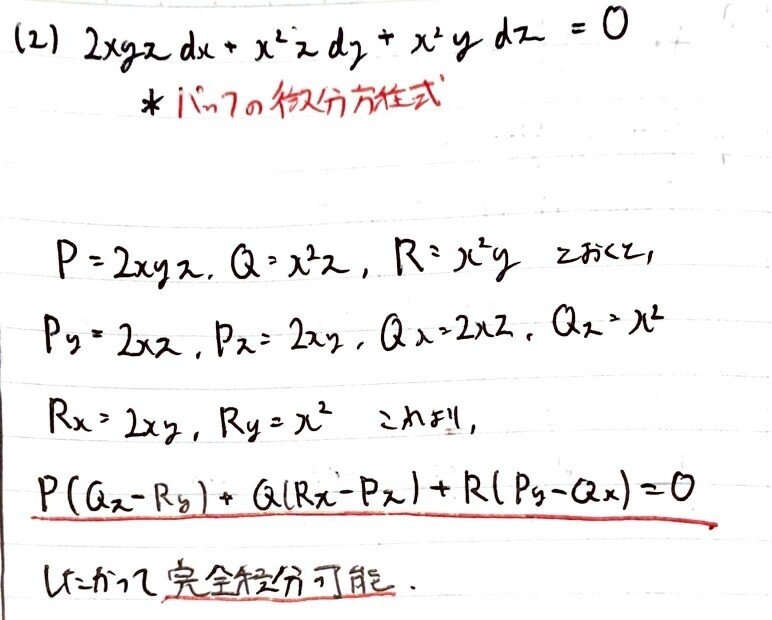 (2) 2xyz dx + x²z dy + x²y dz = 0
* パッフの微分方程式
P = 2xyz, Q = x²z, R = x²y とおくと,
Py = 2xz, Pz = 2xy, Qx = 2xz, Qz = x²
Rx = 2xy, Ry = x² これより,
P(Qz-Ry) + Q(Rx-Pz) + R(Py-Qx) = 0
したがって 完全積分可能.